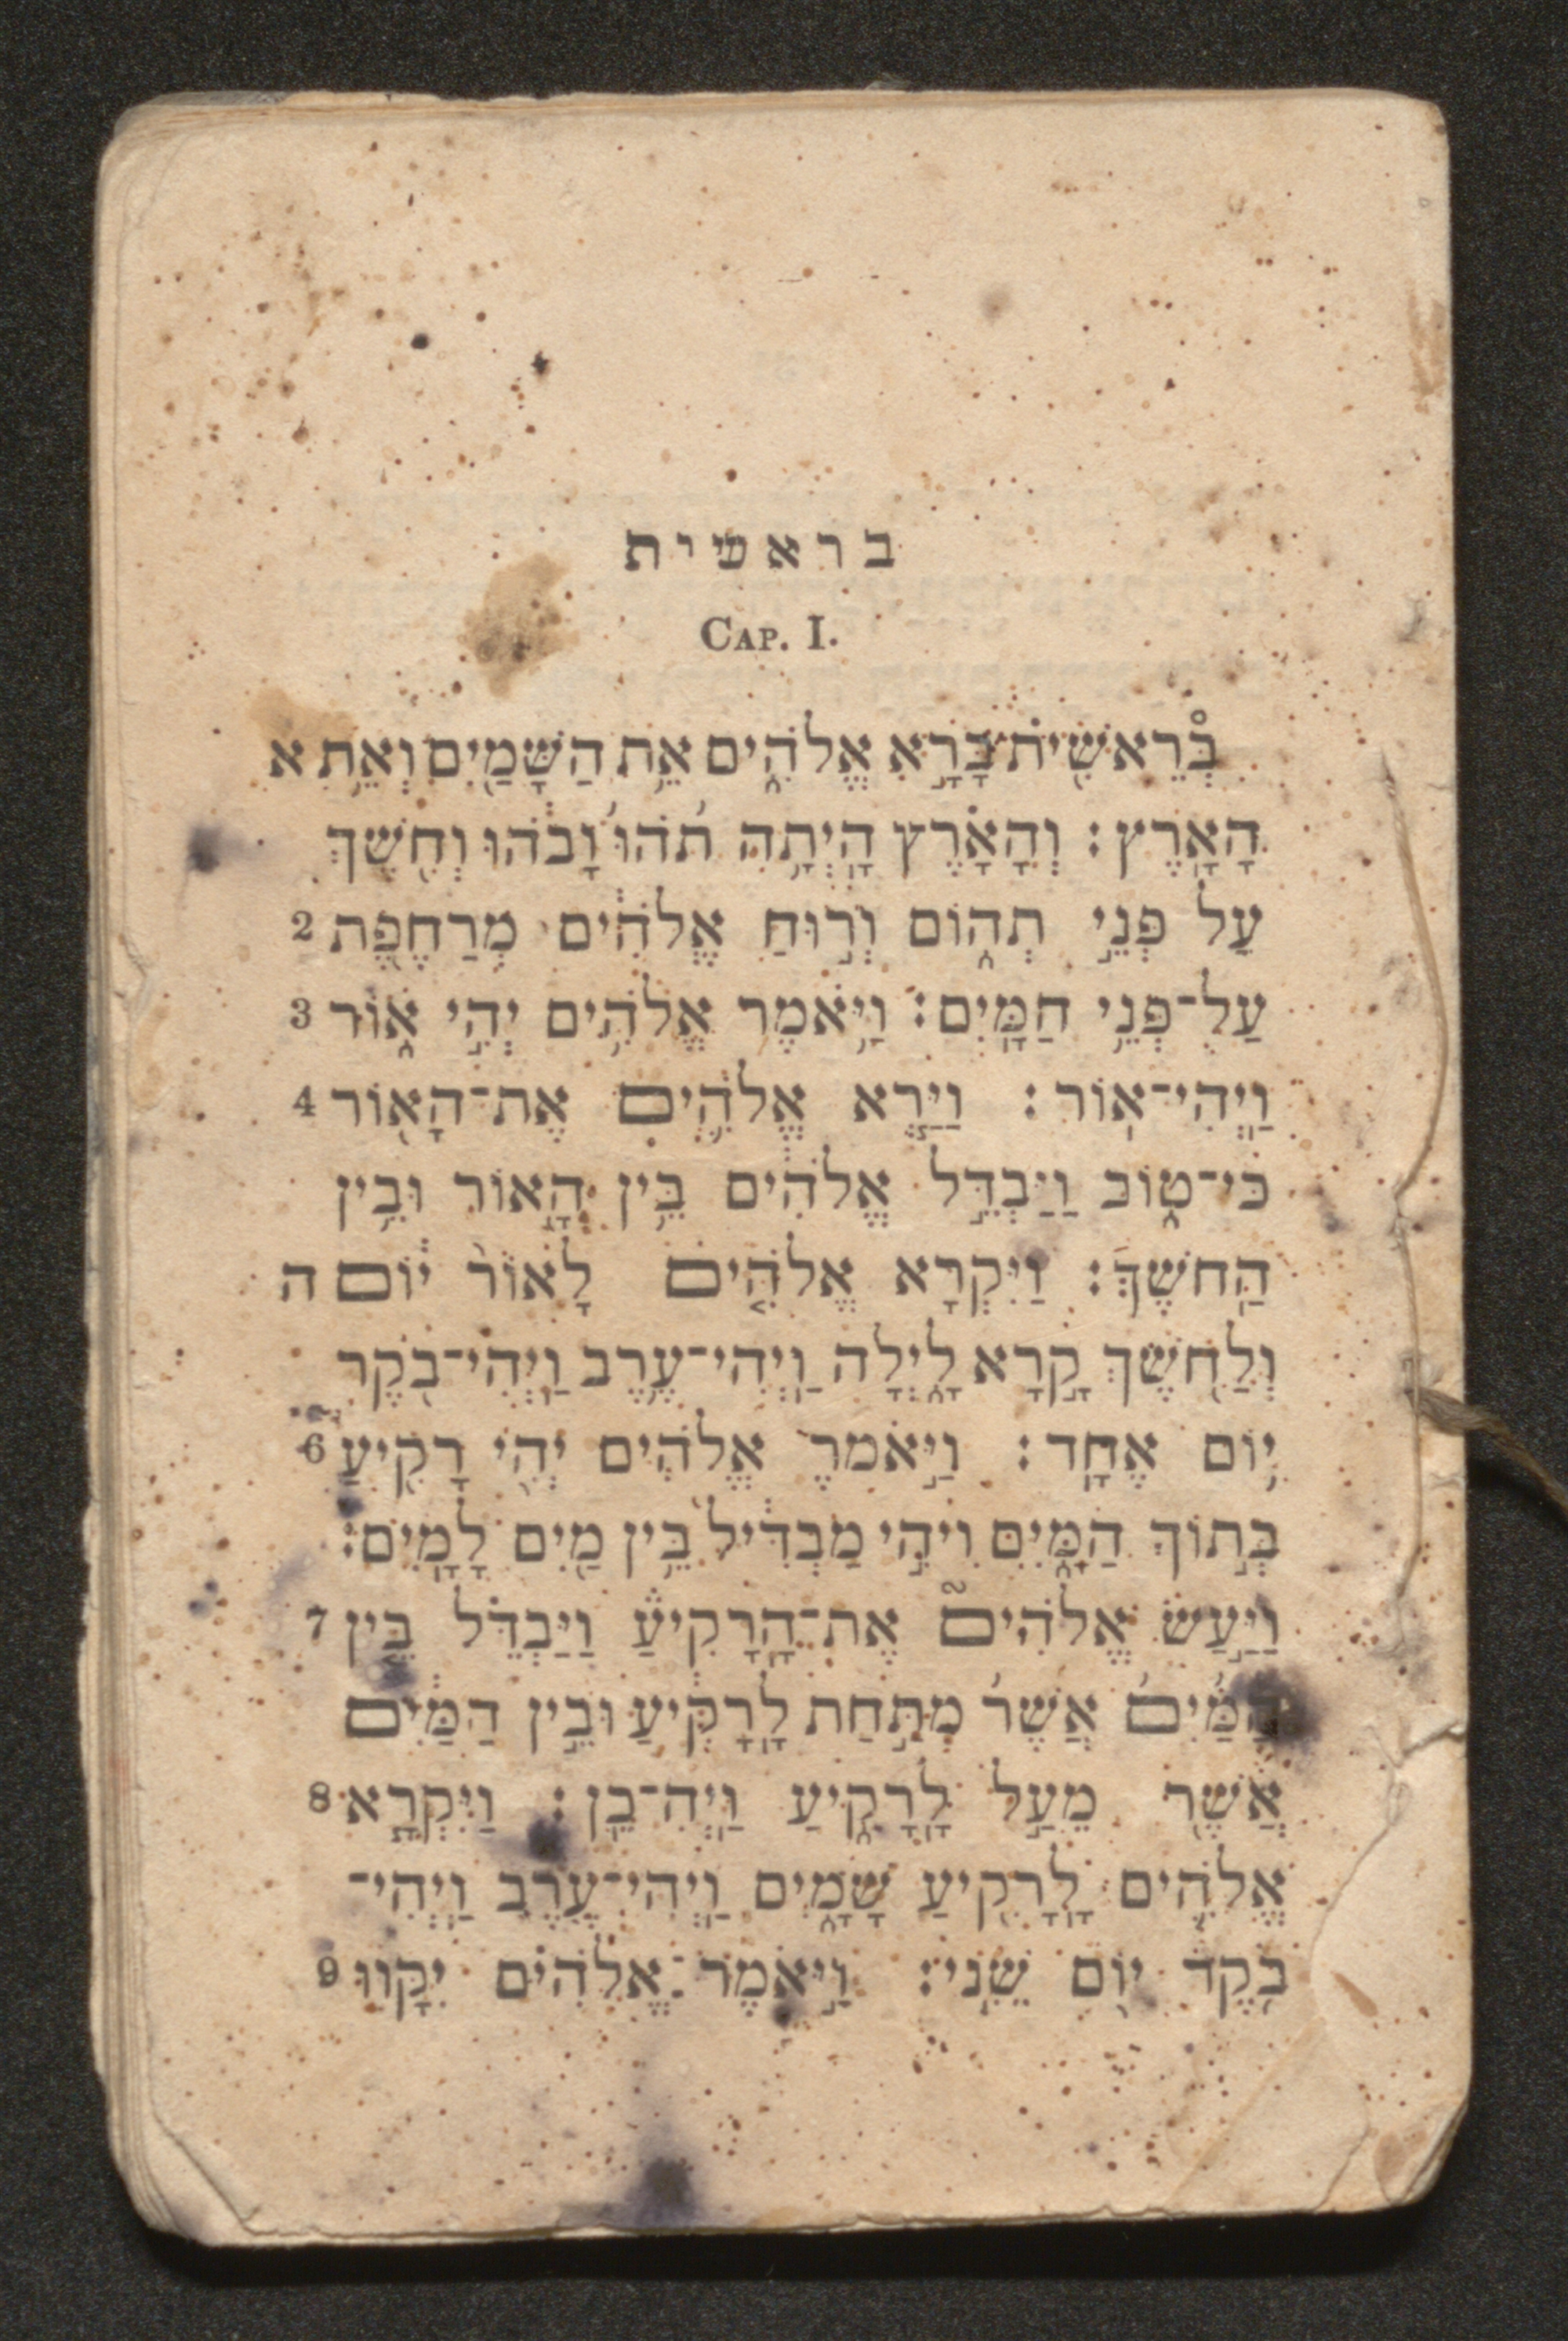 בראשית
CAP. I.
בְּרֵאשִׁ֖ית בָּרָ֣א אֱלֹהִ֑ים אֵ֥ת הַשָּׁמַ֖יִם וְאֵ֥ת א
הָאָֽרֶץ׃ וְהָאָ֗רֶץ הָיְתָ֥ה תֹ֙הוּ֙ וָבֹ֔הוּ וְחֹ֖שֶׁךְ
עַל פְּנֵ֣י תְה֑וֹם וְר֣וּחַ אֱלֹהִ֔ים מְרַחֶ֖פֶת 2
עַל־פְּנֵ֥י חַמָּֽיִם׃ וַיֹּ֥אמֶר אֱלֹהִ֖ים יְהִ֣י א֑וֹר 3
וַֽיְהִי־אֽוֹר׃ וַיַּ֧רְא אֱלֹהִ֛ים אֶת־הָא֖וֹר 4
כִּי־ט֑וֹב וַיַּבְדֵּ֣ל אֱלֹהִ֔ים בֵּ֥ין הָא֖וֹר וּבֵ֥ין
הַֽחֹשֶׁךְ׃ וַיִּקְרָ֨א אֱלֹהִ֤ים לָאוֹר֙ י֔וֹם ה
וְלַחֹ֖שֶׁךְ קָ֣רָא לָ֑יְלָה וַֽיְהִי־עֶ֥רֶב וַֽיְהִי־בֹ֖קֶר
י֥וֹם אֶחָֽד׃ וַיֹּ֣אמֶר אֱלֹהִ֔ים יְהִ֥י רָקִ֖יעַ 6
בְּת֣וֹךְ הַמָּ֑יִם וִיהִ֣י מַבְדִּ֔יל בֵּ֥ין מַ֖יִם לָמָֽיִם׃
וַיַּ֣עַשׂ אֱלֹהִים֮ אֶת־הָרָקִיעַ֒ וַיַּבְדֵּ֗ל בֵּ֤ין 7
הַמַּ֙יִם֙ אֲשֶׁר֙ מִתַּ֣חַת לָרָקִ֔יעַ וּבֵ֣ין הַמַּ֔יִם
אֲשֶׁ֖ר מֵעַ֣ל לָרָקִ֑יעַ וַֽיְהִי־בֵֽן׃ וַיִּקְרָ֧א 8
אֱלֹהִ֛ים לָֽרָקִ֖יעַ שָׁמָ֑יִם וַֽיְהִי־עֶ֥רֶב וַֽיְהִי־
בֹ֖קֶר י֥וֹם שֵׁנִֽי׃ וַיֹּ֣אמֶר אֱלֹהִ֗ים יִקָּו֨וּ 9